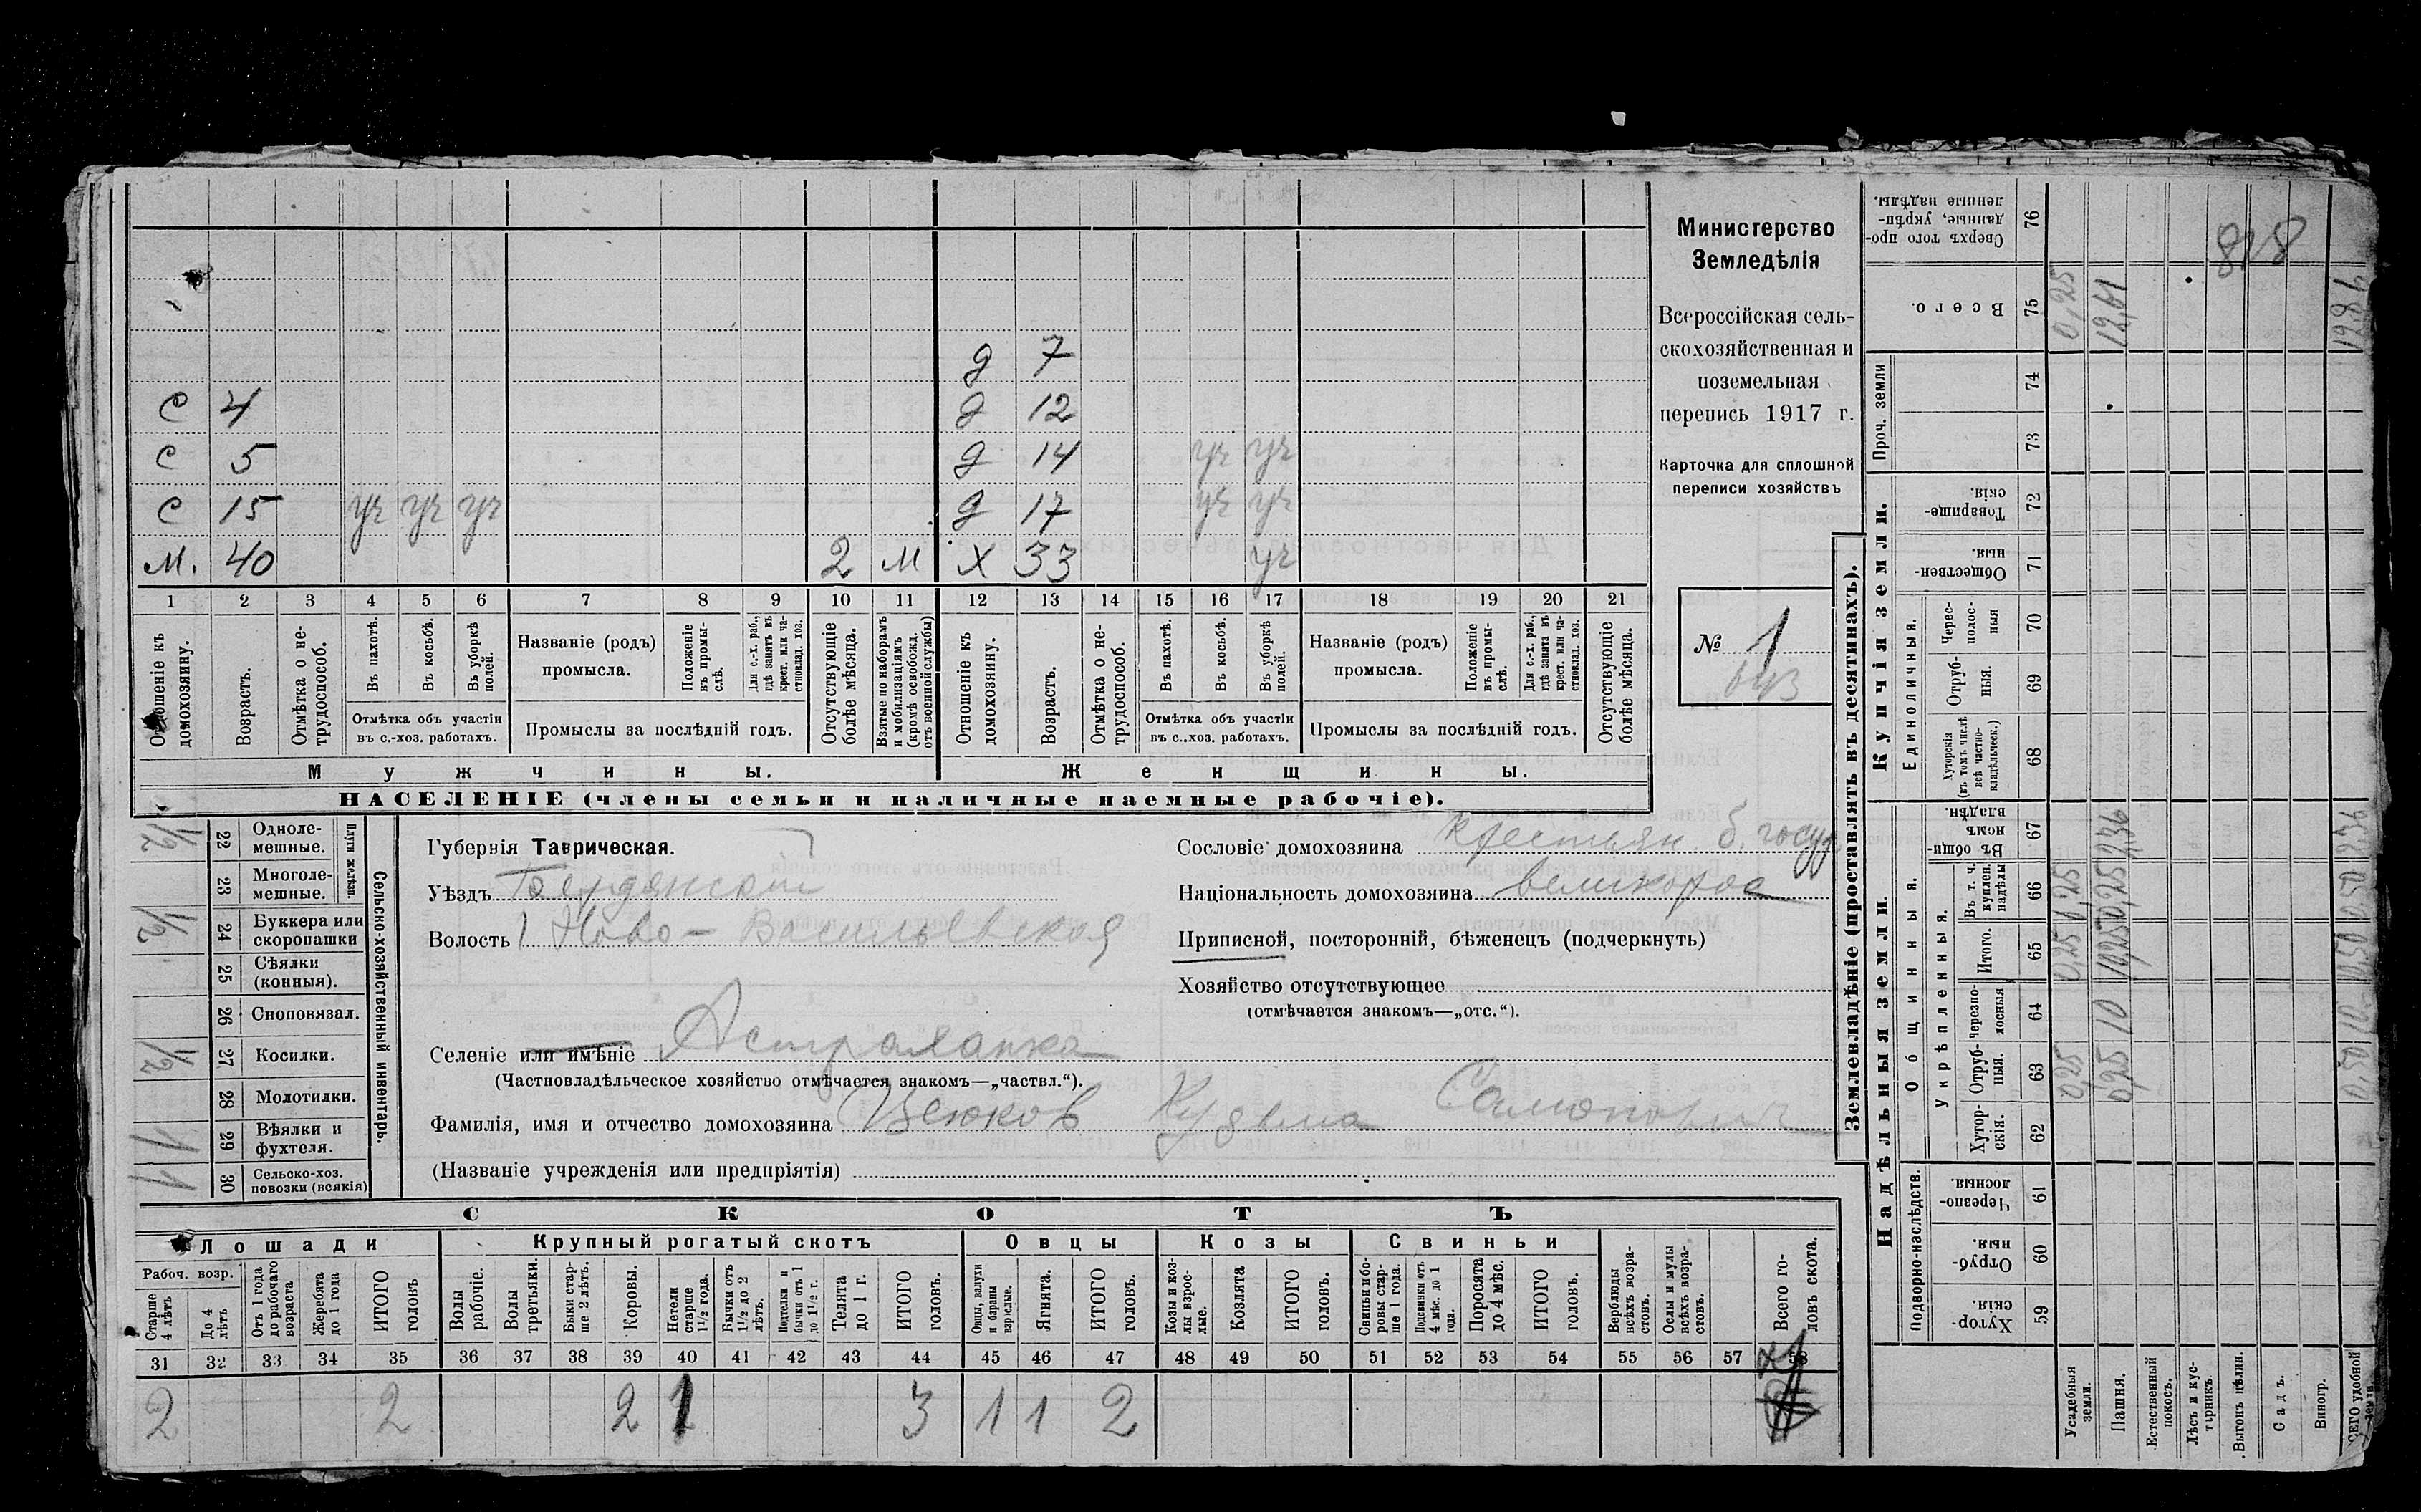 д 7
С 4 д 12
С 5 д 14 уч уч
С 15 уч уч уч д 17 уч уч
М. 40 2 м Х 33 уч
1 2 3 4 5 6 7 8 9 10 11 12 13 14 15 16 17 18 19 20 21
Отношеніе къ домохозяину.
Возрастъ.
Отмѣтка о не-трудоспособ.
Въ пахотѣ.
Въ косьбѣ.
Въ уборкѣ полей.
Отмѣтка объ участіи
въ с.-хоз. работахъ.
Названіе (родъ)
промысла.
Положеніе въ промы-слѣ.
Для с.-х. раб., гдѣ занятъ въ крест. или ча-стновлад. хоз.
Промыслы за послѣдній годъ.
Отсутствующіе болѣе мѣсяца.
Взятые по наборамъ и мобилизаціямъ (кромѣ освобожд. отъ военной службы)
Отношеніе къ домохозяину.
Возрастъ.
Отмѣтка о не-трудоспособ.
Въ пахотѣ.
Въ косьбѣ.
Въ уборкѣ полей.
Отмѣтка объ участіи
въ с..хоз. работахъ.
Названіе (родъ)
промысла.
Положеніе въ промы-слѣ.
Для с.-х. раб., гдѣ занята въ крест. или ча-стновлад. хоз.
Промыслы за послѣдній годъ.
Отсутствующіе болѣе мѣсяца.
Мужчины. Женщины.
НАСЕЛЕНІЕ (члены семьи и наличные наемные рабочіе).
Министерство
Земледѣлія
Всероссійская сель-
скохозяйственная и
поземельная
перепись 1917 г.
Карточка для сплошной
переписи хозяйствъ
№ 1
Сельско-хозяйственный инвентарь.
Плуги желѣзн.
1/2 22 Одноле-мешные.
23 Многоле-мешные.
1/2 24 Буккера или скоропашки
25 Сѣялки (конныя).
26 Сноповязал.
1/2 27 Косилки.
28 Молотилки.
1 29 Вѣялки и фухтеля.
1 30 Сельско-хоз. повозки (всякія)
Губернія Таврическая.
Уѣздъ Бердянскій
Волость Ново-Васильевская
Селеніе или имѣніе Астраханка
(Частновладѣльческое хозяйство отмѣчается знакомъ—„частвл.“).
Фамилія, имя и отчество домохозяина Кузьма
(Названіе учрежденія или предпріятія)
Сословіе домохозяина крестьян. б. госуд
Національность домохозяина великорос
Приписной, посторонній, бѣженецъ (подчеркнуть)
Хозяйство отсутствующее
(отмѣчается знакомъ—„отс.“).
СКОТЪ
Лошади Крупный рогатый скотъ Овцы Козы Свиньи
Рабоч. возр.
Старше 4 лѣтъ
До 4 лѣтъ
Отъ 1 года до рабочаго возраста
Жеребята до 1 года
ИТОГО головъ
Волы рабочіе.
Волы третьяки.
Быки стар-ше 2 лѣтъ.
Коровы.
Нетели старше 1½ года.
Бычки отъ 1½ до 2 лѣтъ.
Подтелки и бычки отъ 1 до 1½ г.
Телята до 1 г.
ИТОГО головъ.
Овцы, валухи и бараны взрослые.
Ягнята.
ИТОГО головъ.
Козы и коз-лы взрос-лые.
Козлята
ИТОГО головъ.
Свиньи и бо-ровы стар-ше 1 года.
Подсвинки отъ 4 мѣс. до 1 года.
Поросята до 4 мѣс.
ИТОГО головъ.
Верблюды всѣхъ возра-стовъ.
Ослы и мулы всѣхъ возра-стовъ.
Всего го-ловъ скота.
31 32 33 34 35 36 37 38 39 40 41 42 43 44 45 46 47 48 49 50 51 52 53 54 55 56 57 58
2 2 2 1 3 1 1 2
Землевладѣніе (проставлять въ десятинахъ).
Купчія земли.
Надѣльныя земли.
Сверхъ того про-данные, укрѣп-ленные надѣлы. 76
Всего. 75 0,25 12,61 12.86
Проч. земли 74
73
Товарище-скія. 72
Обществен-ныя. 71
Единоличныя.
Черес-полос-ныя 70
Отруб-ныя. 69
Хуторскія (въ томъ числѣ всѣ частно-владѣльческ.) 68
Общинныя.
Въ общин-номъ владѣн. 67 2,36 2,36
Укрѣпленныя.
Въ т. ч. куплен. надѣлы 66 0,25 0,25 0.50
Итого. 65 0,25 10,25 10,50
Черезпо-лосныя 64 10 10
Отруб-ныя. 63 0,25 0,25 0,50
Хутор-скія. 62
Подворно-наслѣдств.
Черезпо-лосныя. 61
Отруб-ныя. 60
Хутор-скія. 59
Усадебныя земли.
Пашня.
Естественный покосъ.
Лѣсъ и кус-тарникъ.
Выгонъ цѣлин.
Садъ.
Виногр.
ВСЕГО удобной земли.
818